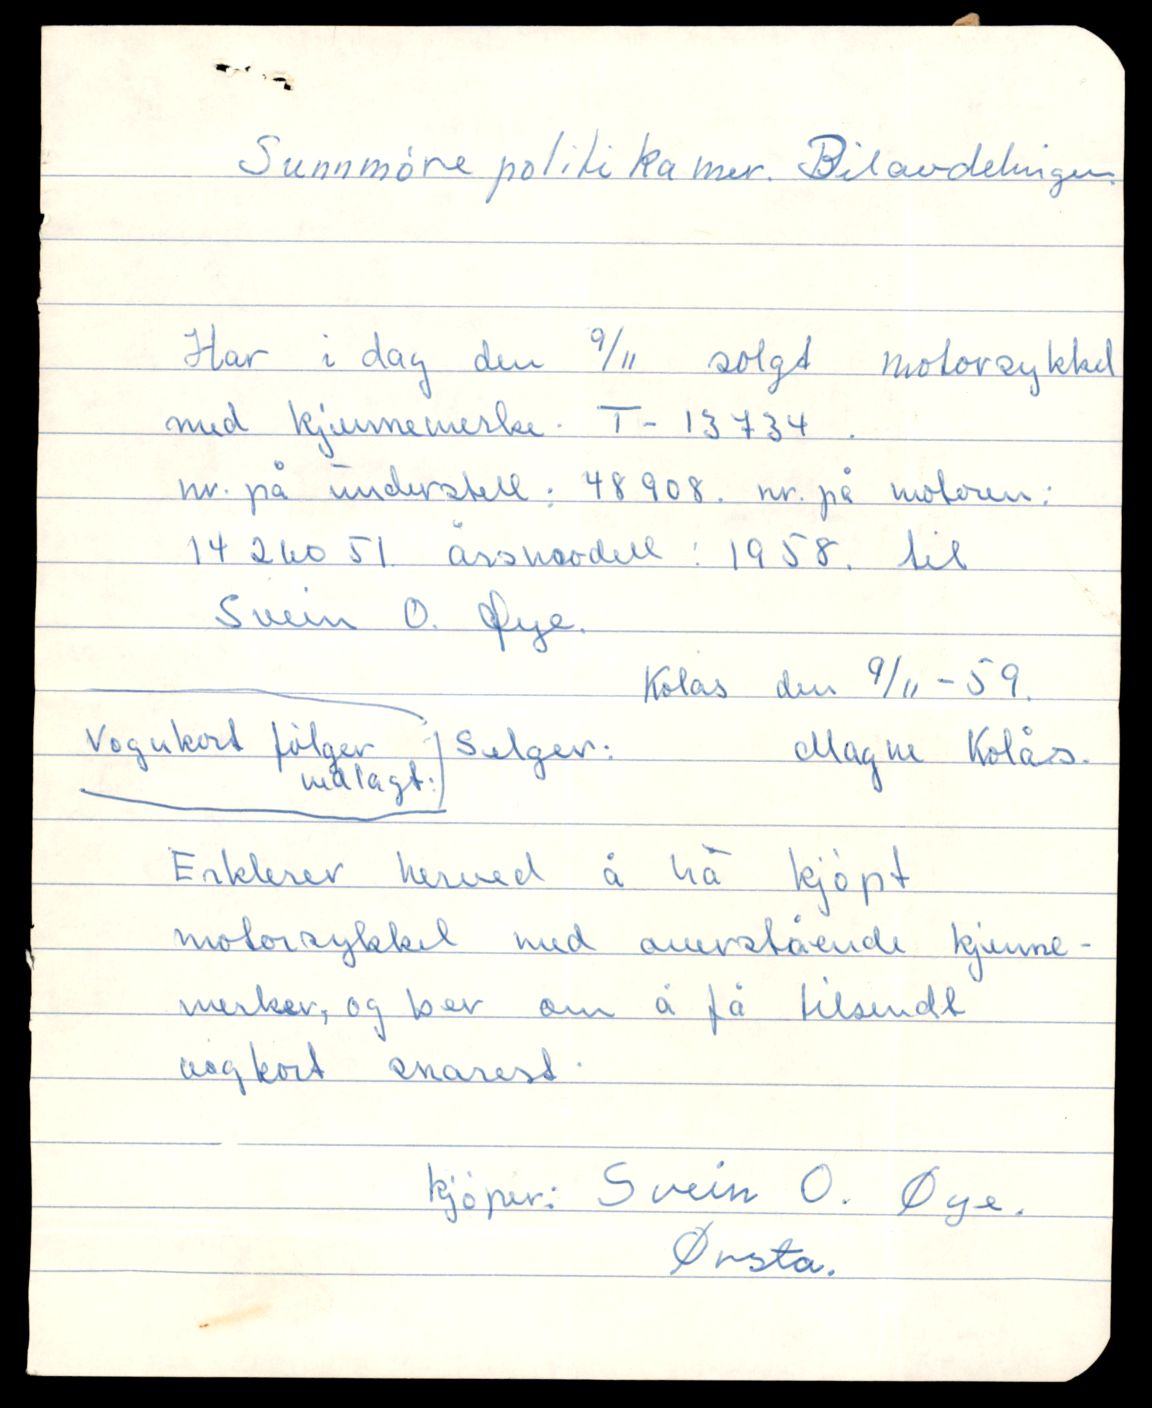 Sunnmöre politikamer. Bilavdelingen.
Har i dag den 9/11 solgt motorsykkel
med kjennemerke. T- 13734.
nr. på understell: 48908. nr. på motoren:
årsmodell: 1958. til
Svein O. Øye.
Kolås den 9/11 - 59.
Vognkort fölger
vedlagt.
Selger: Magne Kolås.
Erklerer herved å hå kjöpt
motorsykkel med overstående kjenne-
merker, og ber om å få tilsendt
vogkort snarest.
kjöper: Svein O. Øye.
Ørsta.